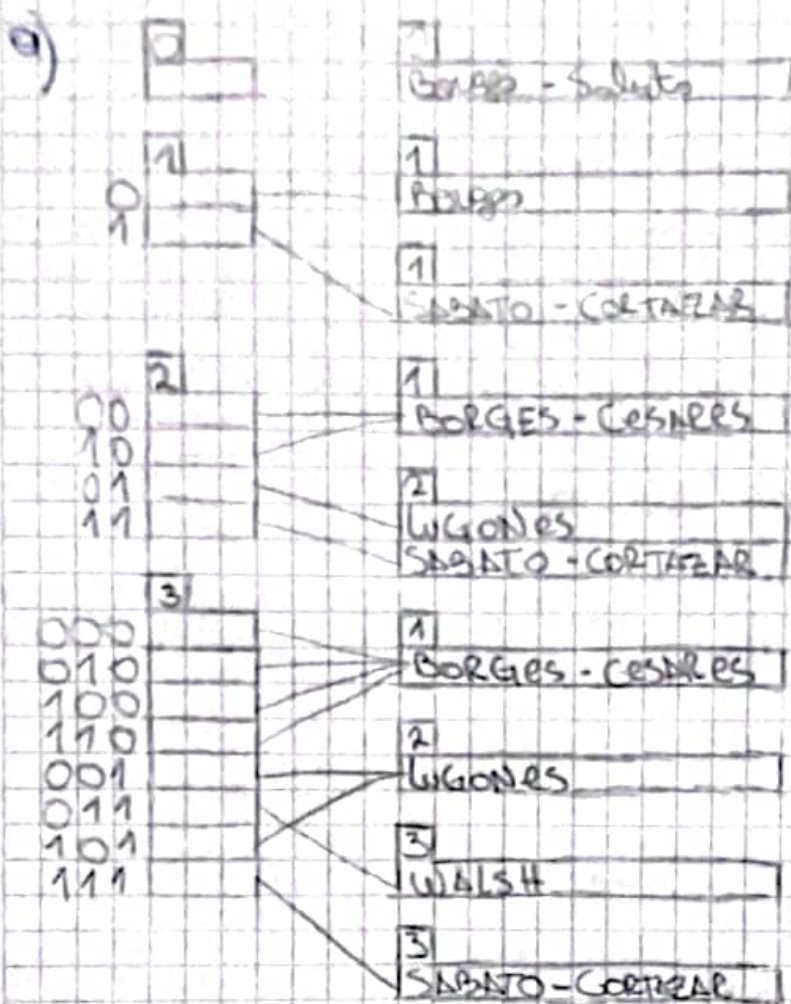 a)
0
Borges - Sabato
1
0
1
1
Borges
1
SABATO - CORTAZAR
2
00
10
01
11
1
BORGES - CeSAReS
2
LUGONes
SABATO - CORTAZAR
3
000
010
100
110
001
011
101
111
1
BORGes - CeSAReS
2
LUGONes
3
WALSH
3
SABATO - CORTAZAR